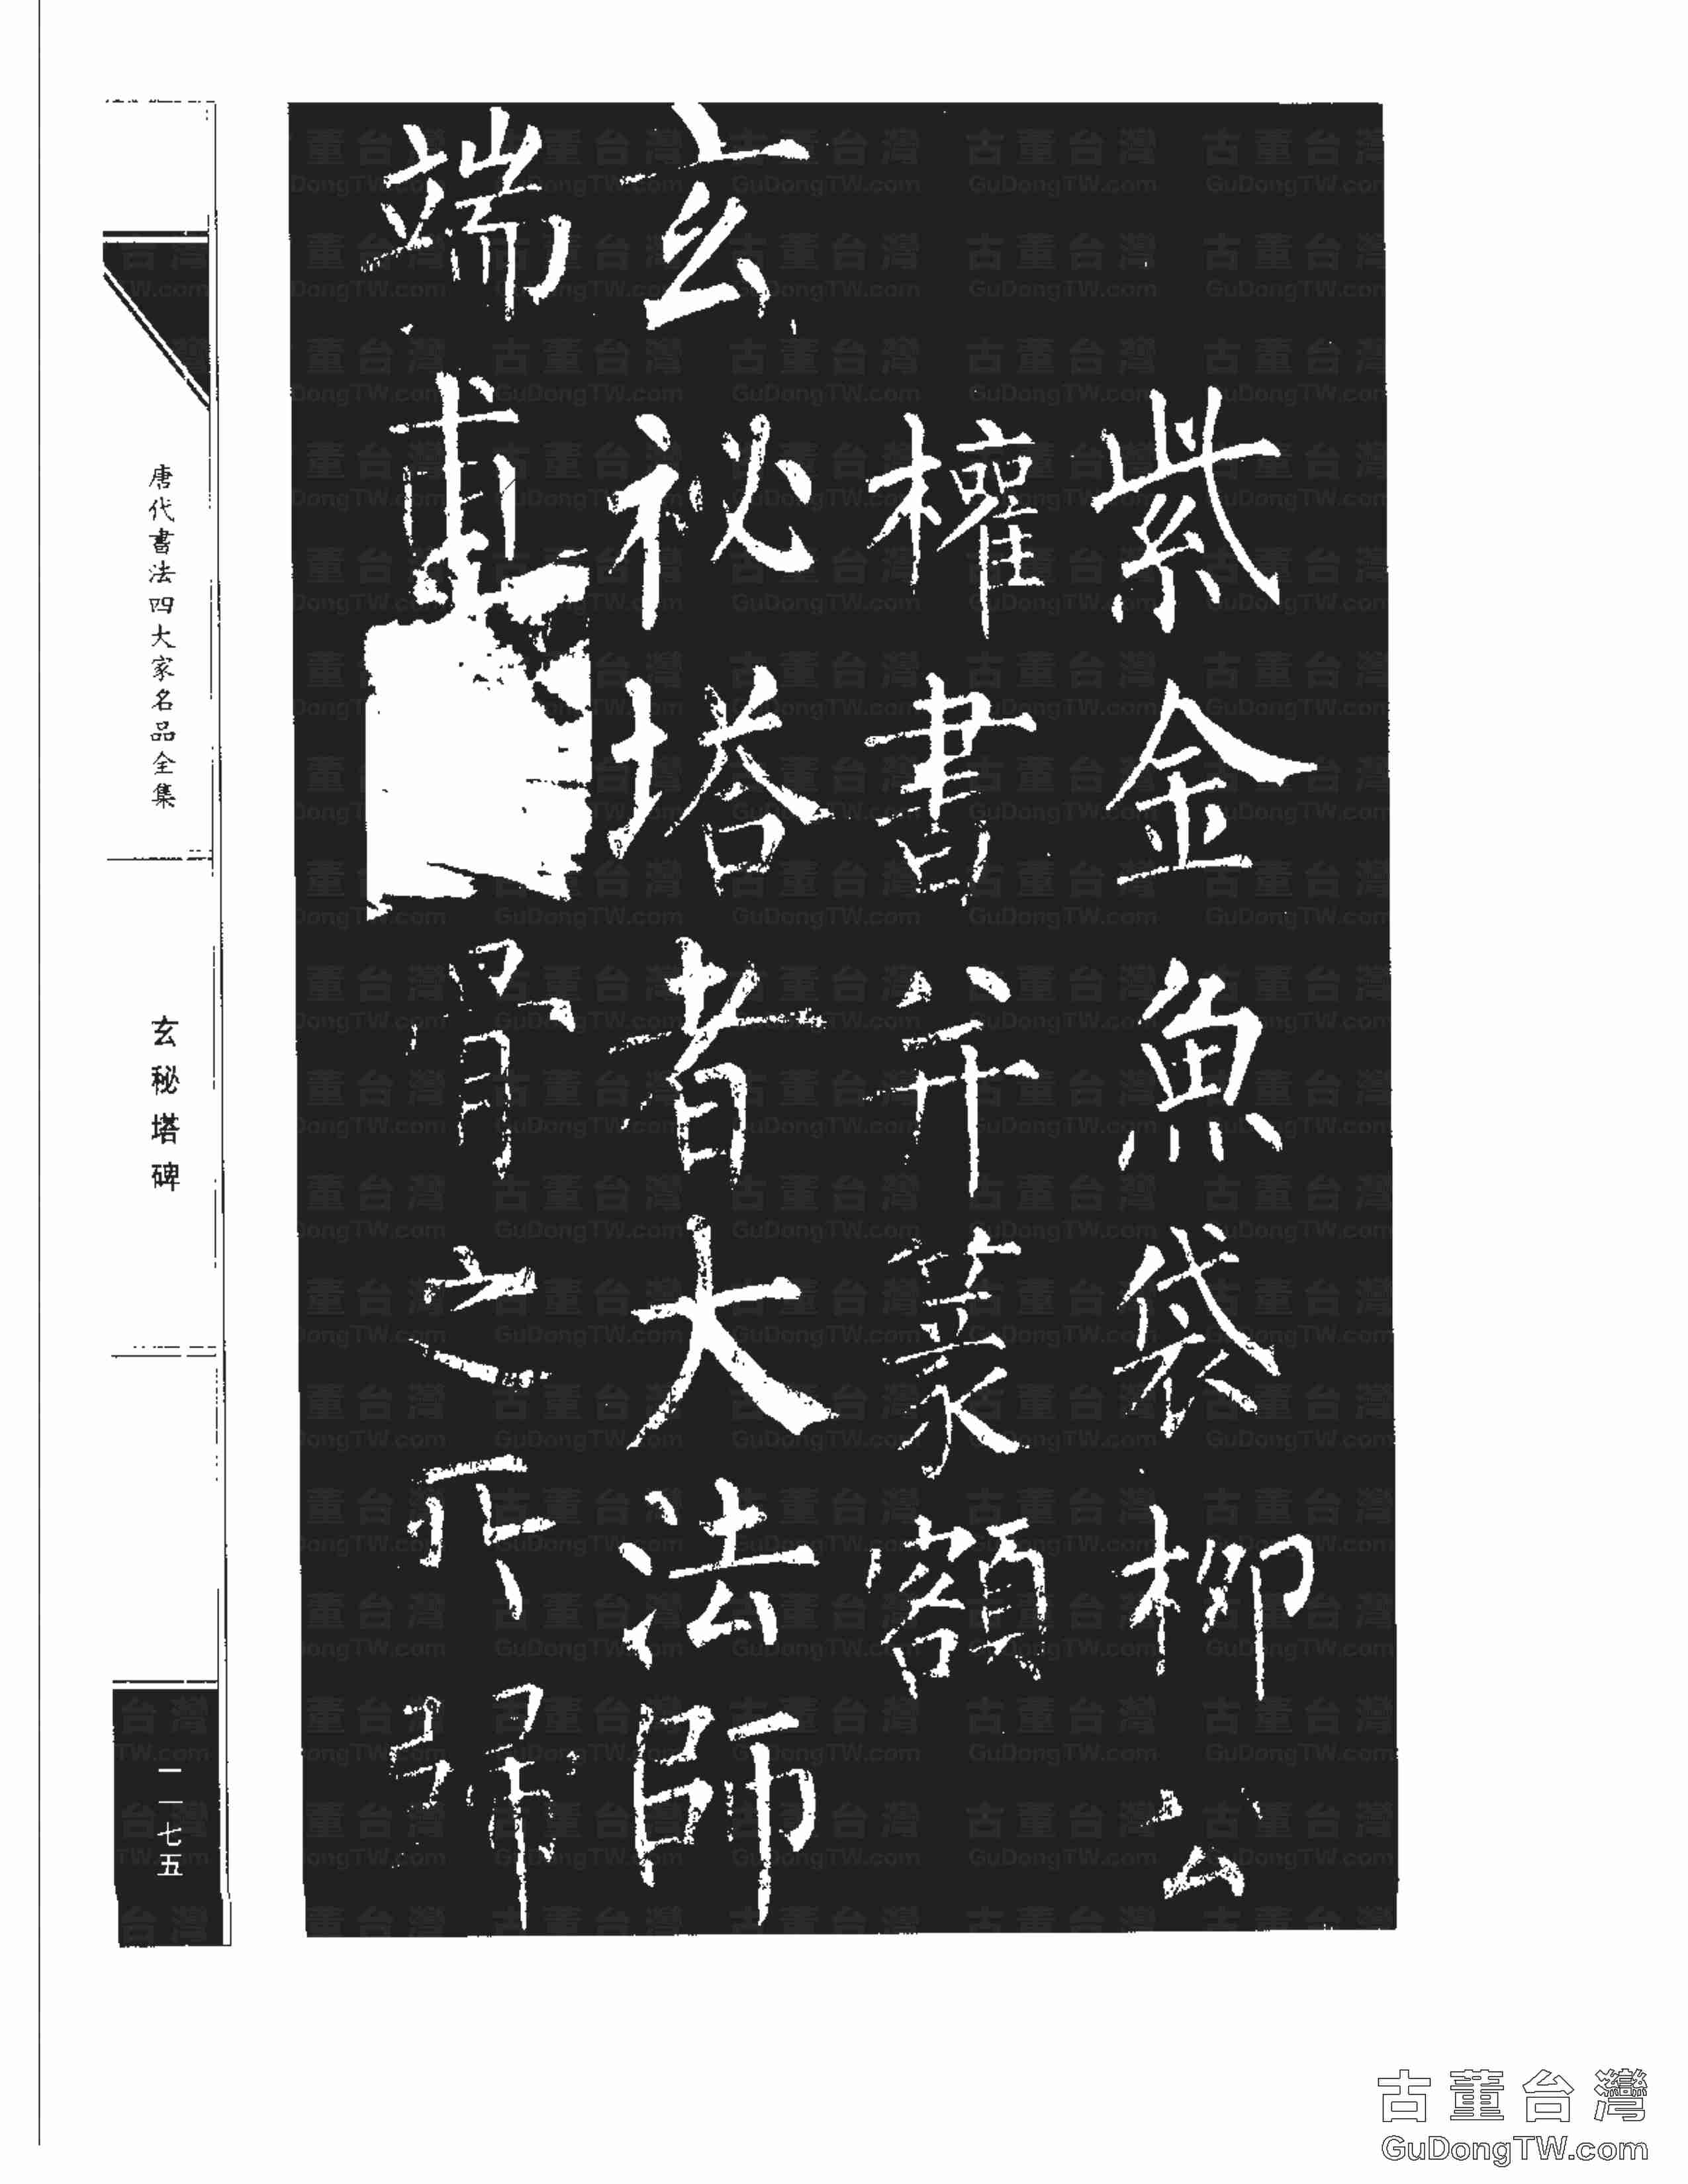 紫金魚袋柳公
權書并篆額
玄祕塔者大法師
端甫骨之所歸
唐代書法四大家名品全集
玄秘塔碑
一一七五
古董台灣
GuDongTW.com